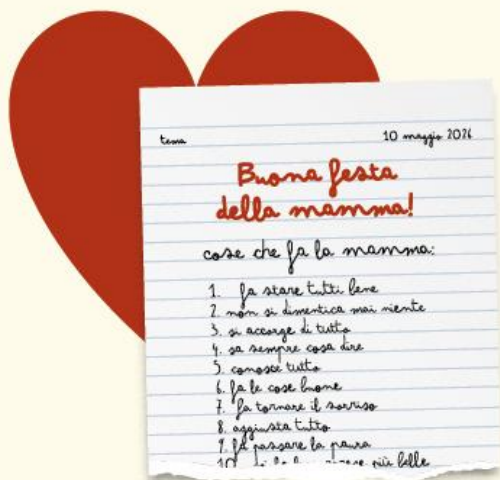 tema
10 maggio 2026
Buona festa
della mamma!
cose che fa la mamma:
1. fa stare tutti bene
2. non si dimentica mai niente
3. si accorge di tutto
4. sa sempre cosa dire
5. conosce tutto
6. fa le cose buone
7. fa tornare il sorriso
8. aggiusta tutto
9. fa passare la paura
10. più belle